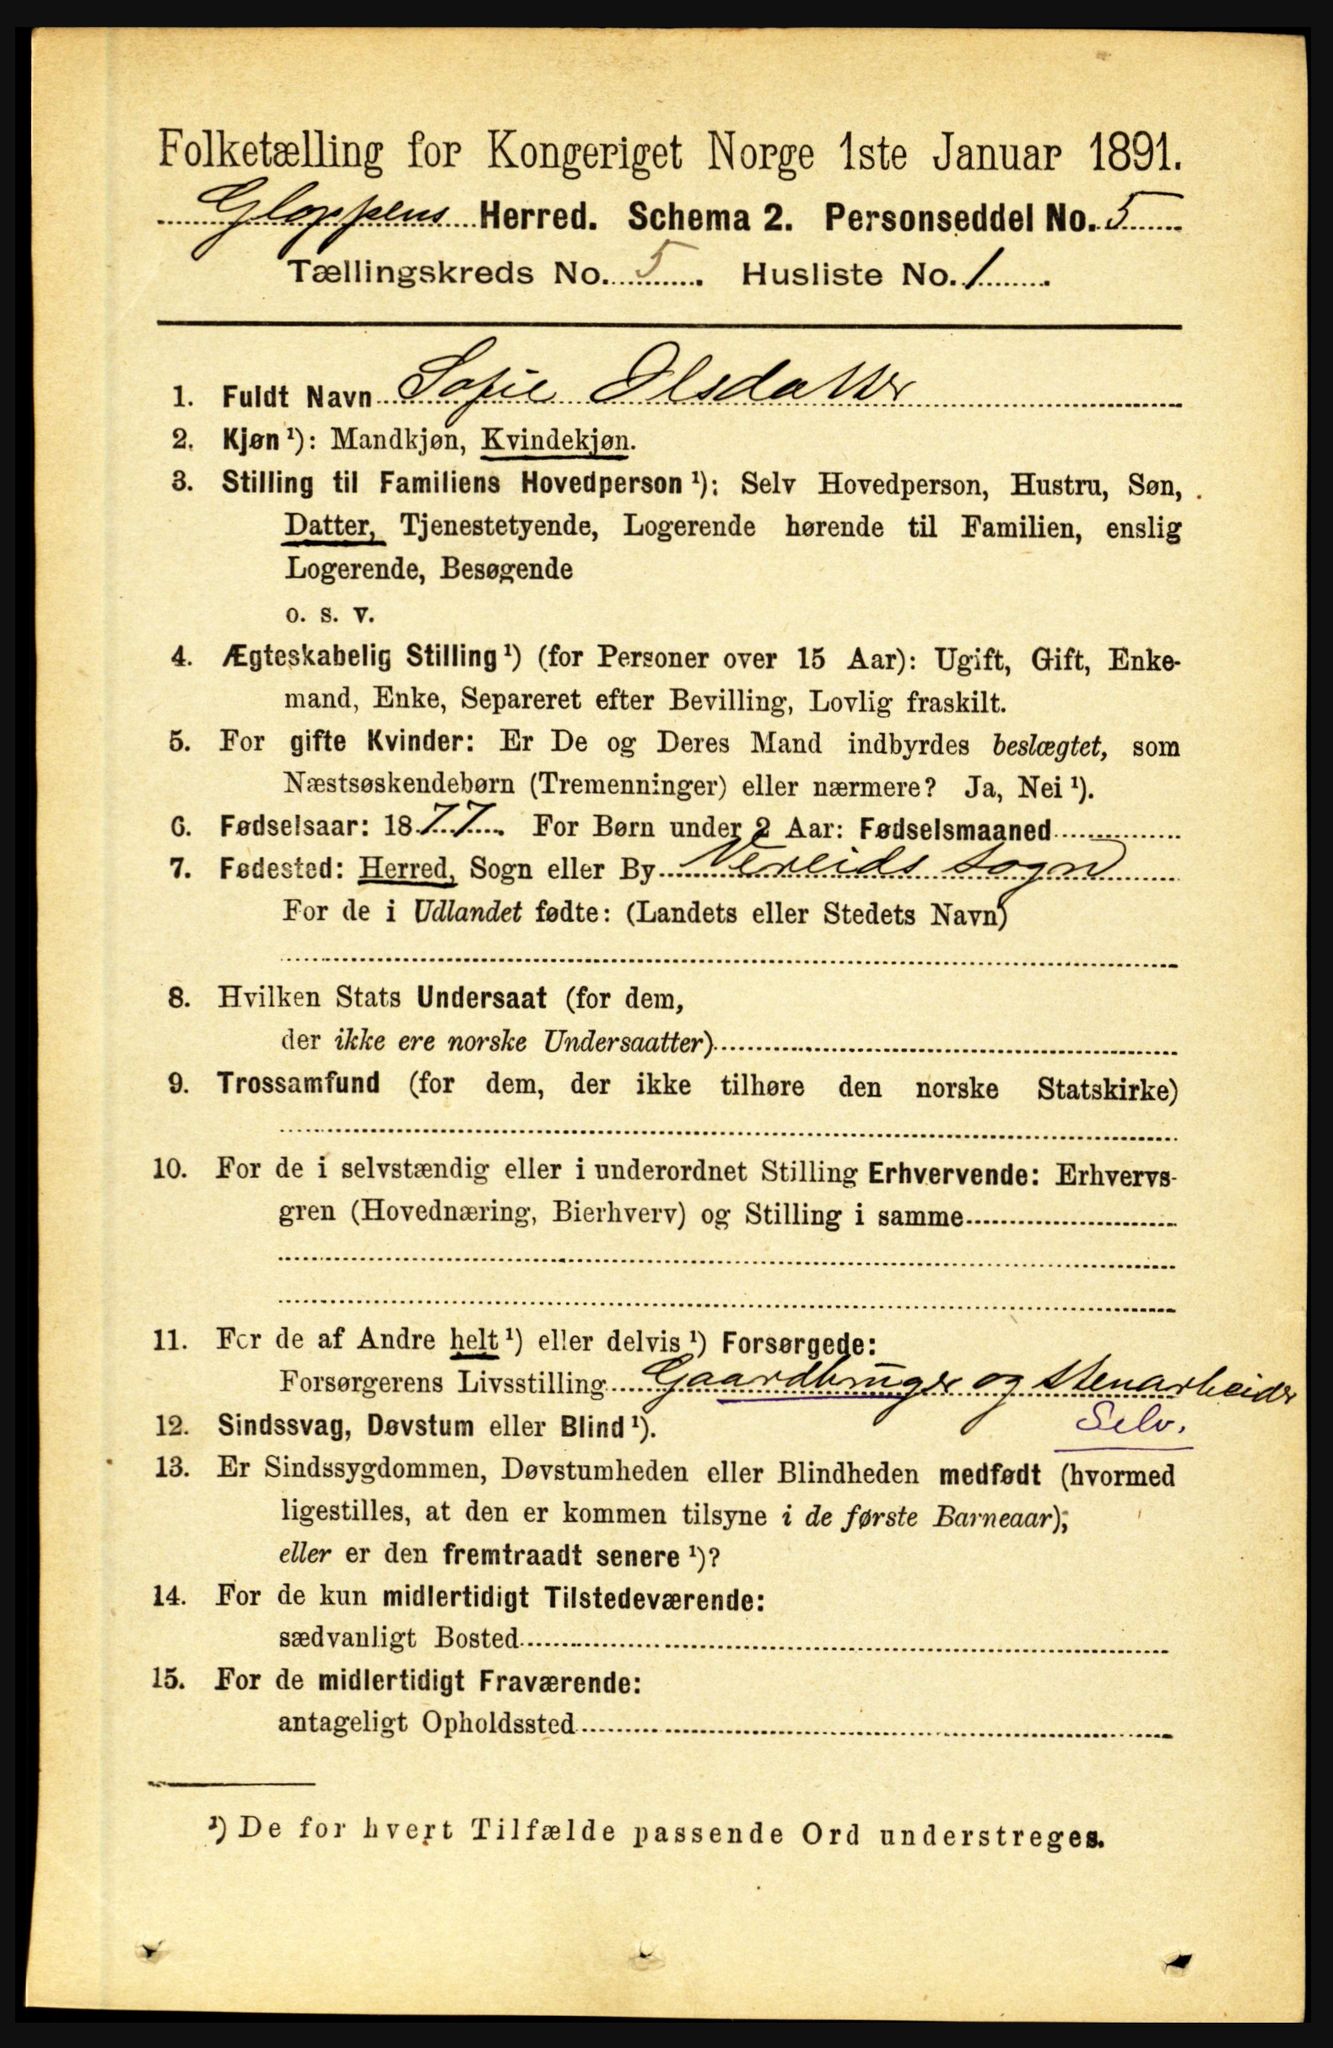 Folketælling for Kongeriget Norge 1ste Januar 1891.
Gloppens Herred. Schema 2. Personseddel No. 5
Tællingskreds No. 5. Husliste No. 1.
1. Fuldt Navn Sofie Olsdatter
2. Kjøn ¹): Mandkjøn, Kvindekjøn.
3. Stilling til Familiens Hovedperson ¹): Selv Hovedperson, Hustru, Søn,
Datter, Tjenestetyende, Logerende hørende til Familien, enslig
Logerende, Besøgende
o. s. v.
4. Ægteskabelig Stilling ¹) (for Personer over 15 Aar): Ugift, Gift, Enke-
mand, Enke, Separeret efter Bevilling, Lovlig fraskilt.
5. For gifte Kvinder: Er De og Deres Mand indbyrdes beslægtet, som
Næstsøskendebørn (Tremenninger) eller nærmere? Ja, Nei ¹).
6. Fødselsaar: 1877. For Børn under 2 Aar: Fødselsmaaned
7. Fødested: Herred, Sogn eller By Vereids sogn
For de i Udlandet fødte: (Landets eller Stedets Navn)
8. Hvilken Stats Undersaat (for dem,
der ikke ere norske Undersaatter)
9. Trossamfund (for dem, der ikke tilhøre den norske Statskirke)
10. For de i selvstændig eller i underordnet Stilling Erhvervende: Erhvervs-
gren (Hovednæring, Bierhverv) og Stilling i samme
11. For de af Andre helt ¹) eller delvis ¹) Forsørgede:
Forsørgerens Livsstilling Gaardbruger og Stenarbeider
Selv.
12. Sindssvag, Døvstum eller Blind ¹).
13. Er Sindssygdommen, Døvstumheden eller Blindheden medfødt (hvormed
ligestilles, at den er kommen tilsyne i de første Barneaar);
eller er den fremtraadt senere ¹)?
14. For de kun midlertidigt Tilstedeværende:
sædvanligt Bosted
15. For de midlertidigt Fraværende:
antageligt Opholdssted
¹) De for hvert Tilfælde passende Ord understreges.